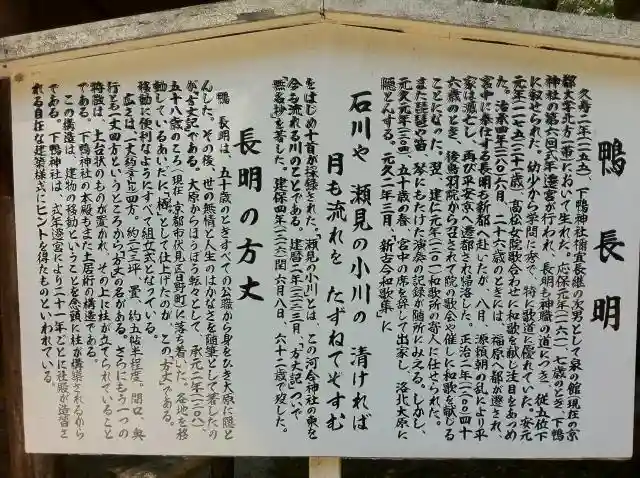 鴨長明
久寿二年(一一五五)、下鴨神社禰宜長継の次男として泉の館(現在の京
都大学北方一帯)において生れた。応保元年(一一六一)七歳のとき、下鴨
神社の第六回式年遷宮が行われ、長明も神職の道につき、従五位下
に叙せられた。幼少から学問に秀で、特に歌道に優れていた。安元
元年(一一七五)(二十一歳)、高松女院歌合わせに和歌を献じ注目をあつめ
た。治承四年(一一八〇)六月、二十六歳のときには、福原へ都が遷され、
宮中に奉仕する長明も新都へ赴いたが、八月、源頼朝の乱により平
家は滅亡し、再び平安京へ遷都され帰落した。正治二年(一二〇〇)四十
六歳のとき、後鳥羽院から召されて院の歌会や催しに和歌を献じる
ことになった。翌、建仁元年(一二〇一)和歌所の寄人に任ぜられた。
また琵琶や笛、琴にもたけた演奏の記録が随所にみえる。しかし、
元久元年(一二〇四)、五十歳の春、宮中の席を辞して出家し、洛北大原に
隠とんする。元久二年三月、「新古今和歌集」に
石川や 瀬見の小川の 清ければ
月も流れを たずねてぞすむ
をはじめ十首が採録された。「瀬見の小川」とは、この河合神社の東を
今も流れる川のことである。建暦二年(一二一二)三月、「方丈記」ついで
「無名抄」を著した。建保四年(一二一六)閏六月八日、六十二歳で歿した。
長明の方丈
鴨 長明は、五十歳のときすべての公職から身をひき大原に隠と
んした。その後、世の無情と人生のはかなさを随筆として著したの
が「方丈記」である。大原からほうぼう転々として、承元二年(一二〇八)、
五十八歳のころ(現在、京都市伏見区日野町)に落ち着いた。各地を移
動しているあいだに、栖として仕上げたのが、この「方丈」である。
移動に便利なようにすべて組立式となっている。
広さは、間口、奥
行とも一丈四方というところから「方丈」の名がある。さらにもう一つの
特徴は、土台状のものが置かれ、その上に柱が立てられていること
である。下鴨神社の本殿もまた土居桁の構造である。
この構造は、建物の移動ということを念頭に柱が構築されるから
である。下鴨神社は、式年遷宮により二十一年ごとに社殿が造替さ
れる自在な建築様式にヒントを得たものといわれている。